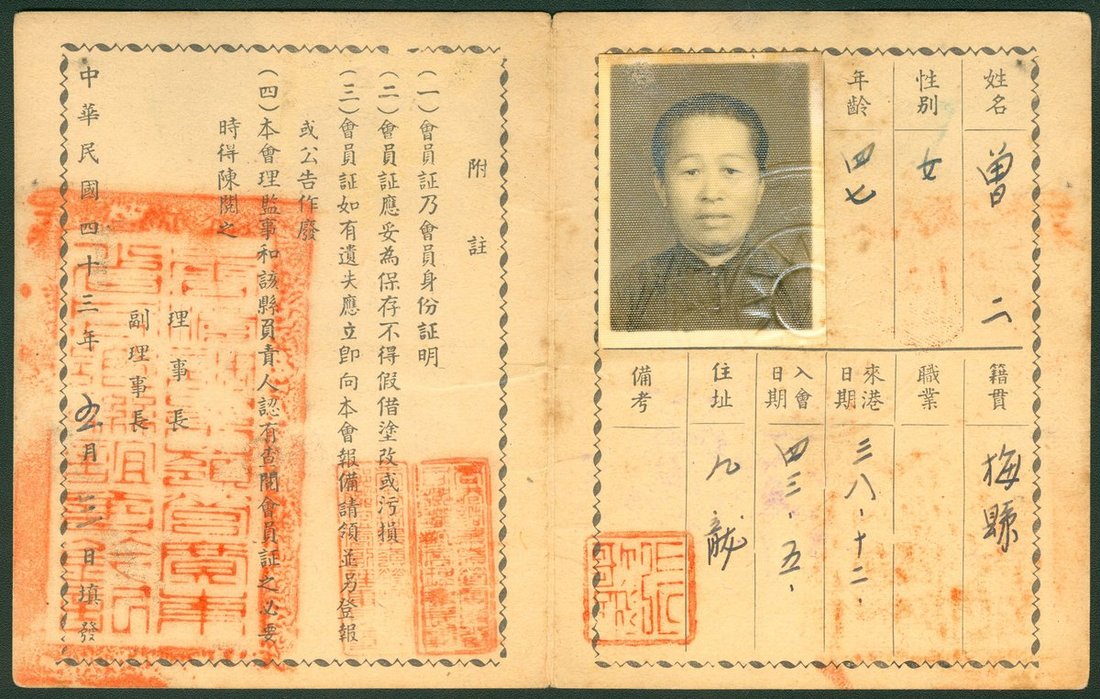 姓名 曾二
性别 女
年齡 四七
籍貫 梅縣
職業
來港日期 三八·十二·
入會日期 四三·五·
住址 九龍
備考
附註
(一)會員証乃會員身份証明
(二)會員証應妥為保存不得假借塗改或污損
(三)會員証如有遺失應立即向本會報備請領並另登報
或公告作廢
(四)本會理監事和該縣負責人認有查閱會員証之必要
時得陳閱之
理事長
副理事長
中華民國四十三年五月三日填發